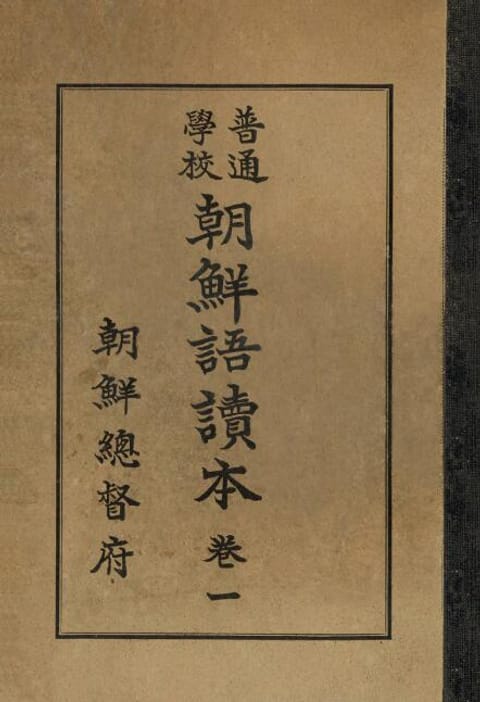 普通
學校
朝鮮語讀本 卷一
朝鮮總督府